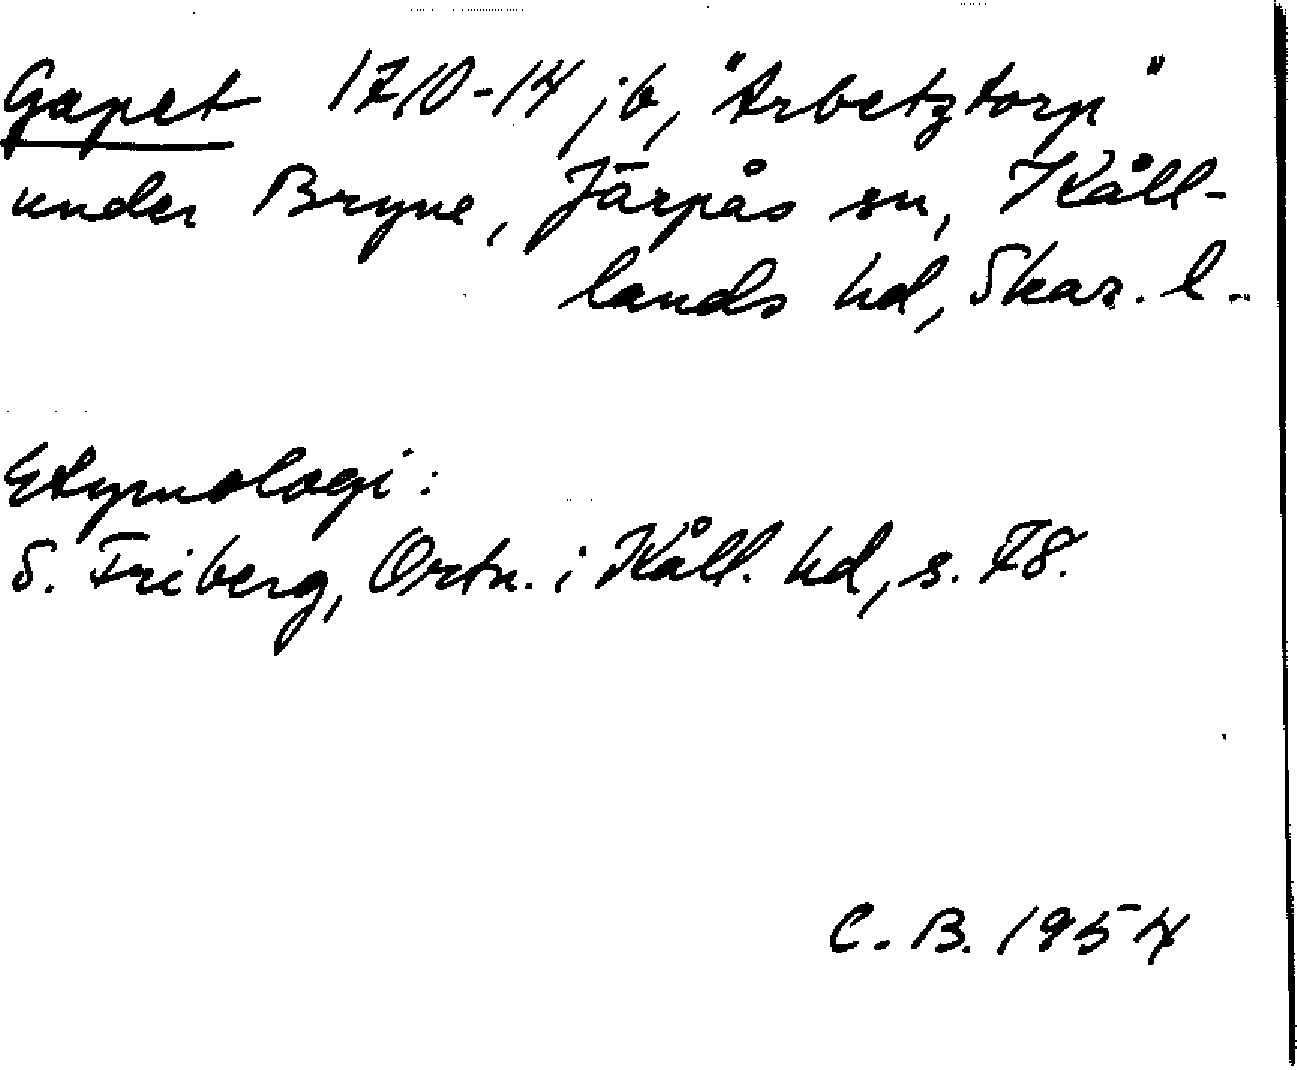 Gapet 1710-14 jb, "Arbetztorp"
under Bryne, Järpås sn, Kåll-
lands hd, Skar. l.
Etymologi:
S. Friberg, Ortn. i Kåll. hd, s. 78.
C. B. 1954